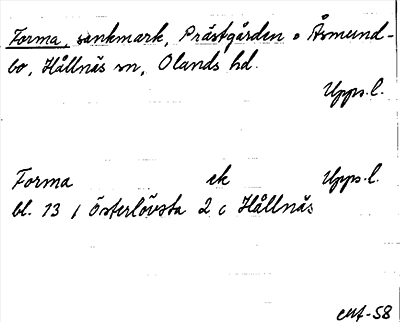 Forma, sankmark, Prästgården o Åsmund-
bo, Hållnäs sn, Olands hd.
Upps.l.
Forma ek Upps.l.
bl. 13 / Österlövsta 2 c Hållnäs
-58